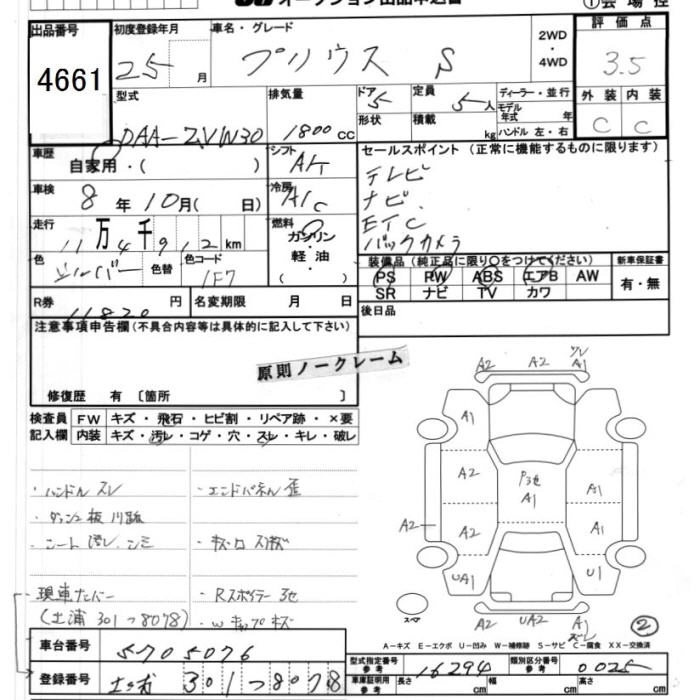 オークション出品申込書
① 会場控
出品番号
4661
初度登録年月
25 月
車名・グレード
プリウス S
2WD・4WD
評価点
3.5
外装 内装
C C
型式
DAA-ZVW30
排気量
1800 cc
ドア
5
形状
定員
5人
積載 kg
ディーラー・並行
モデル年式 年
ハンドル 左・右
車歴
自家用・( )
シフト
A/T
車検
8年10月( 日)
冷房
A/C
走行
11万4千912km
燃料
ガソリン・軽油・( )
色
シルバー
色替
色コード
1F7
セールスポイント (正常に機能するものに限ります)
テレビ
ナビ
ETC
バックカメラ
装備品(純正品に限り〇をつけてください)
PS PW ABS エアB AW
SR ナビ TV カワ
新車保証書
有・無
R券
11820円
名変期限 月 日
後日品
注意事項申告欄(不具合内容等は具体的に記入して下さい)
原則ノークレーム
修復歴 有〔箇所 〕
検査員記入欄
FW キズ・飛石・ヒビ割・リペア跡・×要
内装 キズ・汚レ・コゲ・穴・スレ・キレ・破レ
・ハンドルスレ
・シート汚レ、シミ
現車ナンバー
(土浦 301つ8078)
・エンドパネル歪
・Rスポイラー
A2 A2 A1
A1
A2 P A1 A1
A2 A2 A1
UA1 U1
A2 UA2 A1
スペア
②
A-キズ E-エクボ U-凹み W-補修跡 S-サビ C-腐食 XX-交換済
車台番号
5705076
登録番号
土浦 301つ8078
型式指定番号 参考
16294
類別区分番号 参考
0025
車庫証明用 参考
長さ cm 幅 cm 高さ cm